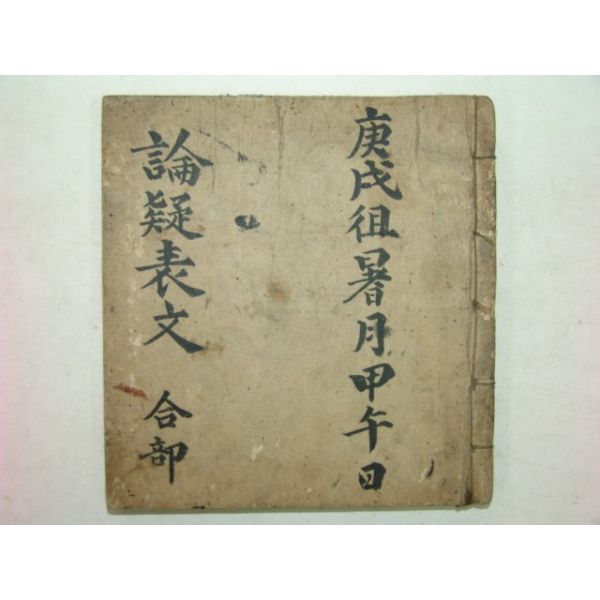 庚戌徂暑月甲午日
論疑表文
合部